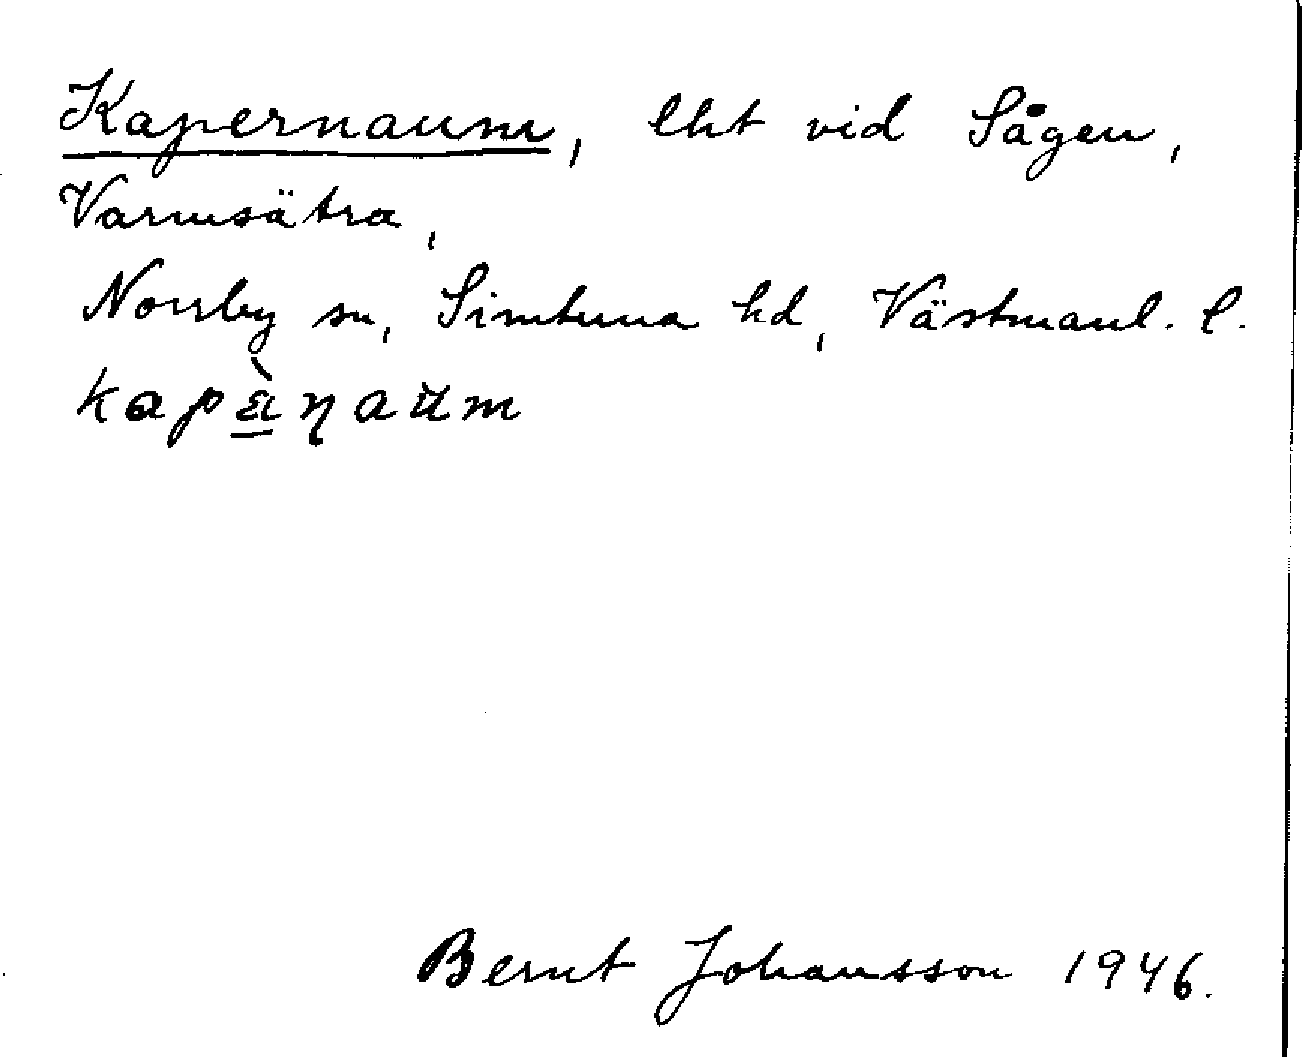 Kapernaum, lht vid Sågen,
Varmsätra,
Norrby sn, Simtuna hd, Västmanl. l.
kapæ̀ṇaʉm
Bernt Johansson 1946.